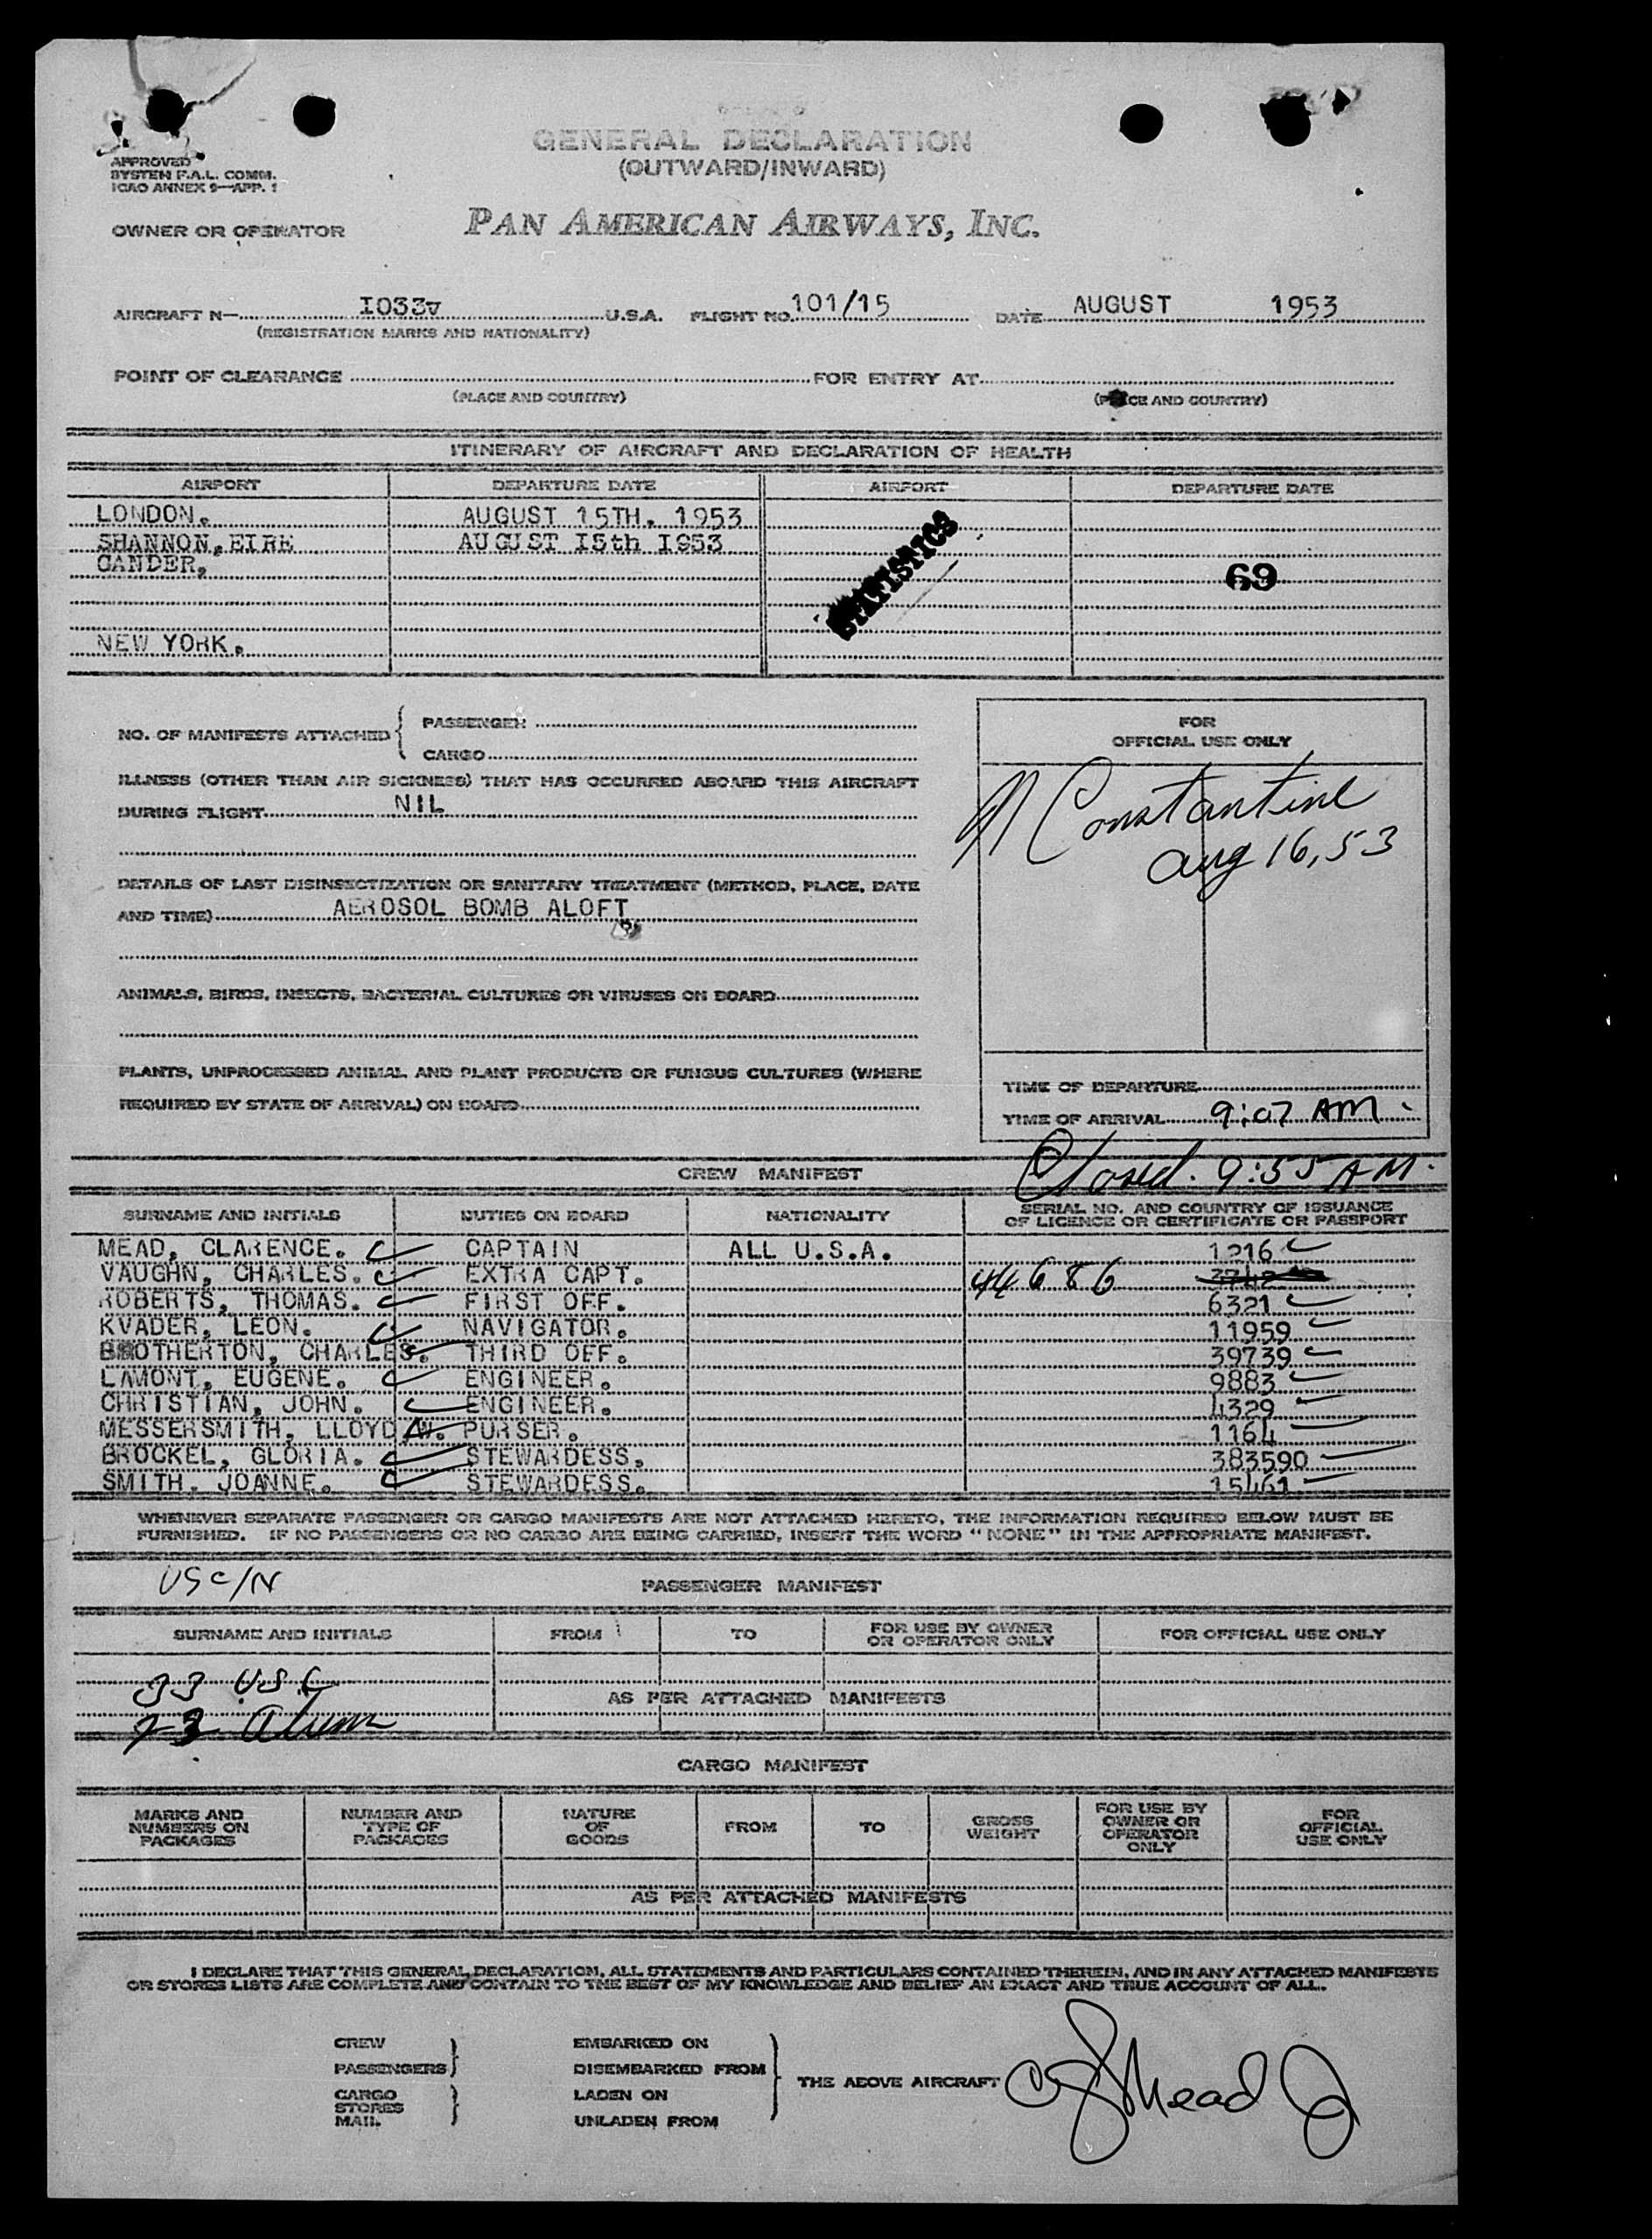 GENERAL DECLARATION
(OUTWARD/INWARD)
APPROVED
SYSTEM F.A.L. COMM.
ICAO ANNEX 9—APP. 1
OWNER OR OPERATOR PAN AMERICAN AIRWAYS, INC.
AIRCRAFT N— I033V U.S.A. FLIGHT NO. 101/15 DATE AUGUST 1953
(REGISTRATION MARKS AND NATIONALITY)
POINT OF CLEARANCE FOR ENTRY AT
(PLACE AND COUNTRY) (PLACE AND COUNTRY)
ITINERARY OF AIRCRAFT AND DECLARATION OF HEALTH
AIRPORT DEPARTURE DATE AIRPORT DEPARTURE DATE
LONDON. AUGUST 15TH. 1953
SHANNON, EIRE AUGUST I5th I953
GANDER,
STATISTICS
69
NEW YORK.
NO. OF MANIFESTS ATTACHED { PASSENGER
CARGO
ILLNESS (OTHER THAN AIR SICKNESS) THAT HAS OCCURRED ABOARD THIS AIRCRAFT
DURING FLIGHT NIL
DETAILS OF LAST DISINSECTIZATION OR SANITARY TREATMENT (METHOD, PLACE, DATE
AND TIME) AEROSOL BOMB ALOFT
ANIMALS, BIRDS, INSECTS, BACTERIAL CULTURES OR VIRUSES ON BOARD
PLANTS, UNPROCESSED ANIMAL AND PLANT PRODUCTS OR FUNGUS CULTURES (WHERE
REQUIRED BY STATE OF ARRIVAL) ON BOARD
FOR
OFFICIAL USE ONLY
N Constantine
Aug 16, 53
TIME OF DEPARTURE
TIME OF ARRIVAL 9:07 AM.
Closed. 9:55 AM.
CREW MANIFEST
SURNAME AND INITIALS DUTIES ON BOARD NATIONALITY SERIAL NO. AND COUNTRY OF ISSUANCE
OF LICENCE OR CERTIFICATE OR PASSPORT
MEAD, CLARENCE. CAPTAIN ALL U.S.A. 1216
VAUGHN, CHARLES. EXTRA CAPT. 44686
ROBERTS, THOMAS. FIRST OFF. 6321
KVADER, LEON. NAVIGATOR. 11959
BROTHERTON, CHARLES. THIRD OFF. 39739
LAMONT, EUGENE. ENGINEER. 9883
CHRISTIAN, JOHN. ENGINEER. 4329
MESSERSMITH, LLOYD W. PURSER. 1164
BROCKEL, GLORIA. STEWARDESS, 383590
SMITH. JOANNE. STEWARDESS. 15461
WHENEVER SEPARATE PASSENGER OR CARGO MANIFESTS ARE NOT ATTACHED HERETO, THE INFORMATION REQUIRED BELOW MUST BE
FURNISHED. IF NO PASSENGERS OR NO CARGO ARE BEING CARRIED, INSERT THE WORD "NONE" IN THE APPROPRIATE MANIFEST.
USC/N
PASSENGER MANIFEST
SURNAME AND INITIALS FROM TO FOR USE BY OWNER
OR OPERATOR ONLY FOR OFFICIAL USE ONLY
33 USC
AS PER ATTACHED MANIFESTS
23 Aliens
CARGO MANIFEST
MARKS AND
NUMBERS ON
PACKAGES
NUMBER AND
TYPE OF
PACKAGES
NATURE
OF
GOODS
FROM
TO
GROSS
WEIGHT
FOR USE BY
OWNER OR
OPERATOR
ONLY
FOR
OFFICIAL
USE ONLY
AS PER ATTACHED MANIFESTS
I DECLARE THAT THIS GENERAL DECLARATION, ALL STATEMENTS AND PARTICULARS CONTAINED THEREIN, AND IN ANY ATTACHED MANIFESTS
OR STORES LISTS ARE COMPLETE AND CONTAIN TO THE BEST OF MY KNOWLEDGE AND BELIEF AN EXACT AND TRUE ACCOUNT OF ALL.
CREW
PASSENGERS
CARGO
STORES
MAIL
EMBARKED ON
DISEMBARKED FROM
LADEN ON
UNLADEN FROM
THE ABOVE AIRCRAFT
Mead Jr